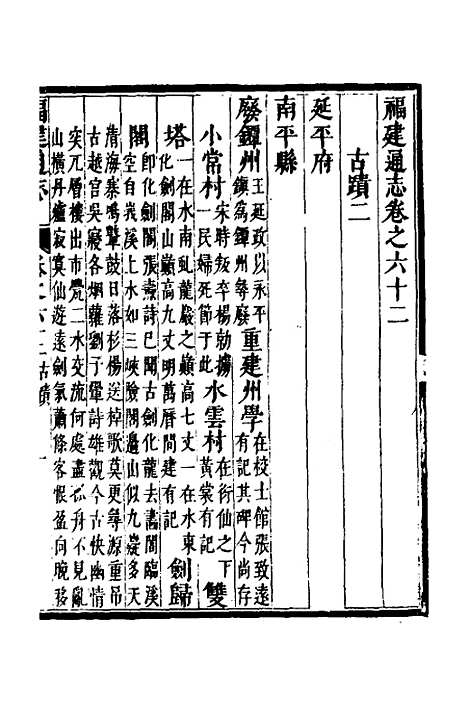 福建通志卷之六十二
古蹟二
延平府
南平縣
廢鐔州王延政以永平鎮爲鐔州尋廢重建州學在校士館張致遠有記其碑今尚存
小常村宋時叛卒楊勍據一民婦死節于此水雲村在衍仙之下黃裳有記雙
塔一在水南虬龍巖之巔高七丈一在水東化劍閣山巔高九丈明萬曆間建有記劍歸
閣卽化劍閣張憲詩已聞古劍化龍去書閣臨溪空自峩溪上水如三峽險閣邊山似九嶷多天
清海寨鳴鼙鼓日落杉楊送棹歌莫更尋源重吊古越宮吳寢各烟蘿劉子翬詩雄觀今古快幽情
突兀層樓出市甍二水交流何處盡孤舟不見亂山橫丹爐寂寞仙遊遠劍氣蕭條客恨盈向晚移
福建通志 卷之六十二 古蹟 一